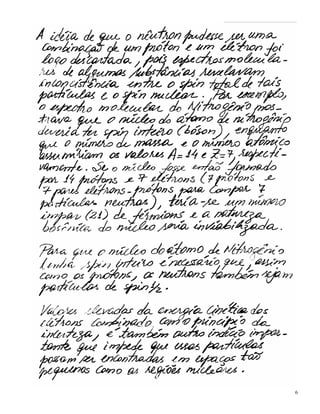 A idéia de que o nêutron pudesse ser uma
combinação de um próton e um elétron foi
logo descartada, pois espectros molecula-
res de algumas substâncias revelavam
inconsistência entre o spin total de tais
partículas e o spin nuclear. Por exemplo,
o espectro molecular do Nitrogênio mos-
trava que o núcleo do átomo de nitrogênio
deveria ter spin inteiro (bóson), enquanto
que o número de massa e o número atômico
assumiriam os valores A=14 e Z=7, respecti-
vamente. Se o núcleo fosse então formado
por 14 prótons e 7 elétrons (7 prótons e
7 pares elétrons-prótons para compor 7
partículas neutras), teria-se um número
ímpar (21) de férmions e a natureza
bosônica do núcleo seria inviabilizada.
Para que o núcleo do átomo de Nitrogênio
tenha spin inteiro é necessário que, assim
como os prótons, os neutrons também sejam
partículas de spin ½.
Valores elevados da energia cinética dos
elétrons combinado com o princípio da
incerteza, é também outro indício impor-
tante que impede que essas partículas
possam ser encontradas em espaços tão
pequenos como as regiões nucleares.
6